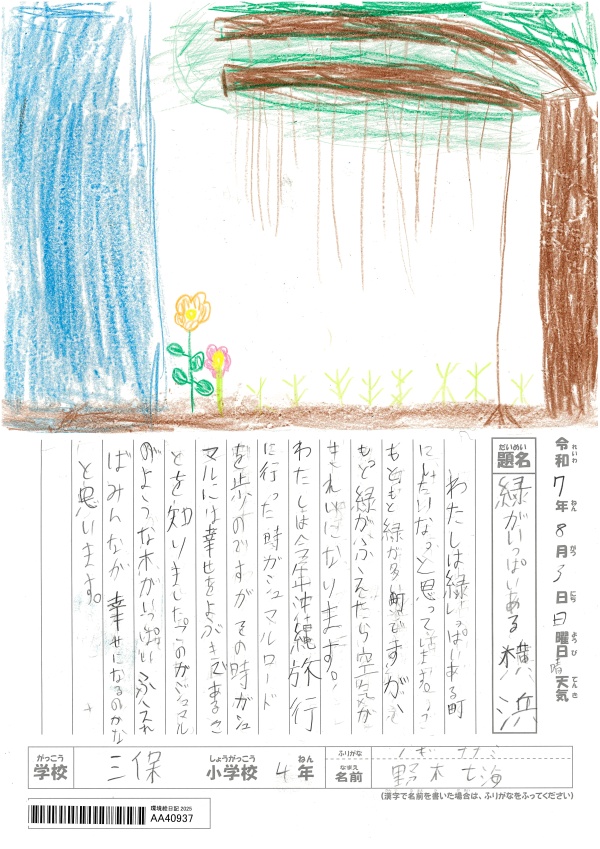 令和7年8月3日日曜日晴天気
れいわ ねん がつ にち ようび てんき
題名 緑がいっぱいある横浜
だいめい
わたしは緑いっぱいある町
にしたいなっと思っています。
もともと緑が多い町ですが、
もっと緑がふえたら空気が
きれいになります。
わたしは今年沖縄旅行
に行った時ガジュマルロード
を歩くのですがその時ガジュ
マルには幸せをよぶ木であるこ
とを知りました。そのガジュマル
のような木がいっぱいふえれ
ばみんなが幸せになるのかな
と思います。
がっこう しょうがっこう ねん
学校 三保 小学校 4年
ふりがな ノギ ナナミ
なまえ
名前 野木 七海
(漢字で名前を書いた場合は、ふりがなをふってください)
環境絵日記 2025
AA40937